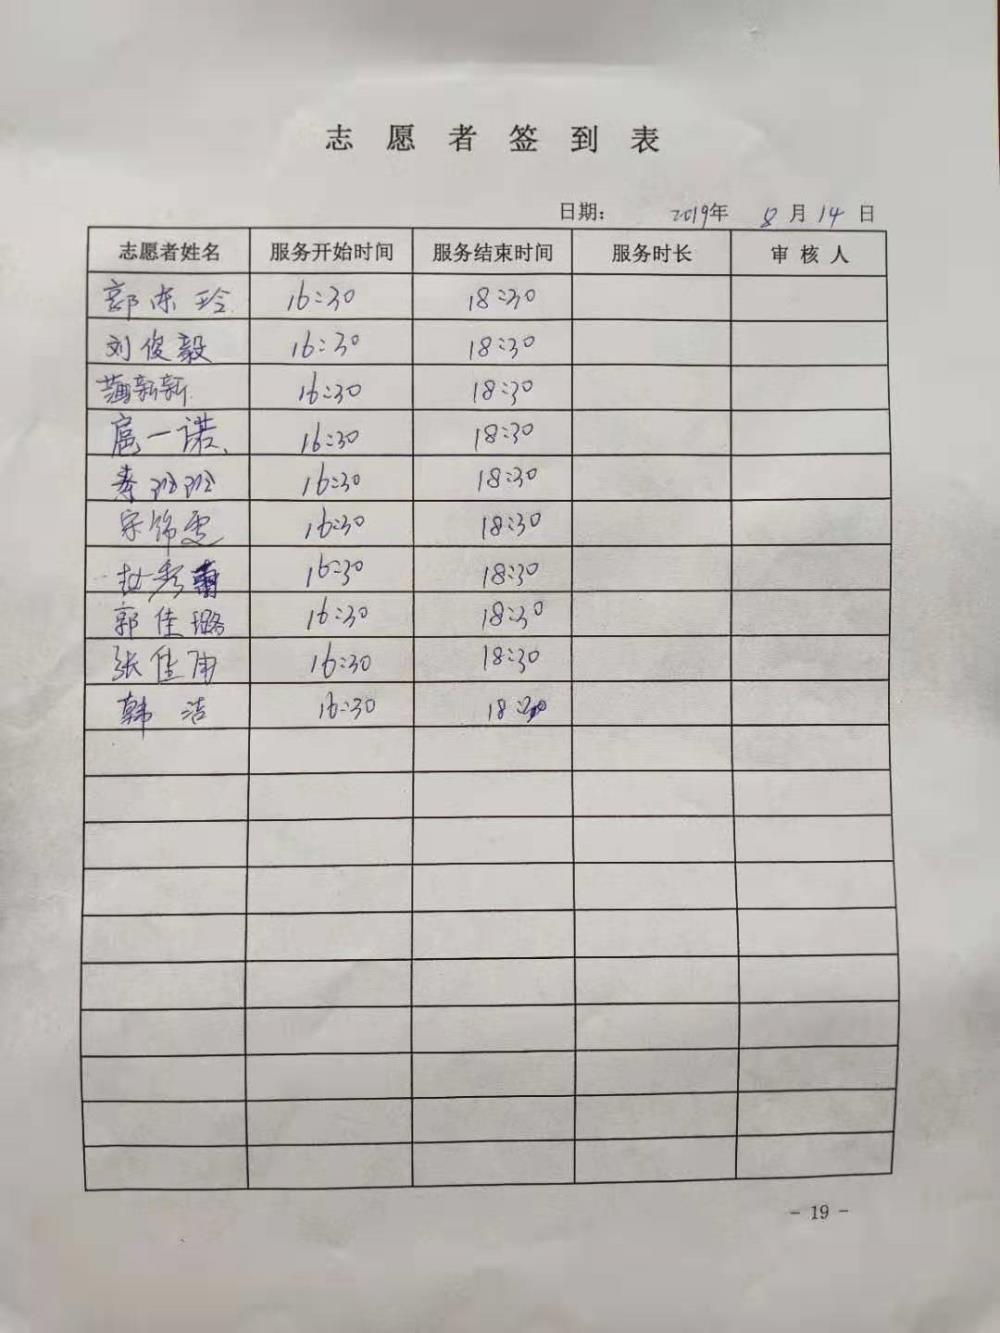 志愿者签到表
日期： 2019年 8月14日
志愿者姓名 服务开始时间 服务结束时间 服务时长 审核人
郭东玲 16:30 18:30
刘俊毅 16:30 18:30
新新 16:30 18:30
扈一诺 16:30 18:30
李班班 16:30 18:30
宋锦雯 16:30 18:30
赵秀 16:30 18:30
郭佳璐 16:30 18:30
张佳雨 16:30 18:30
韩洁 16:30 18:30
- 19 -